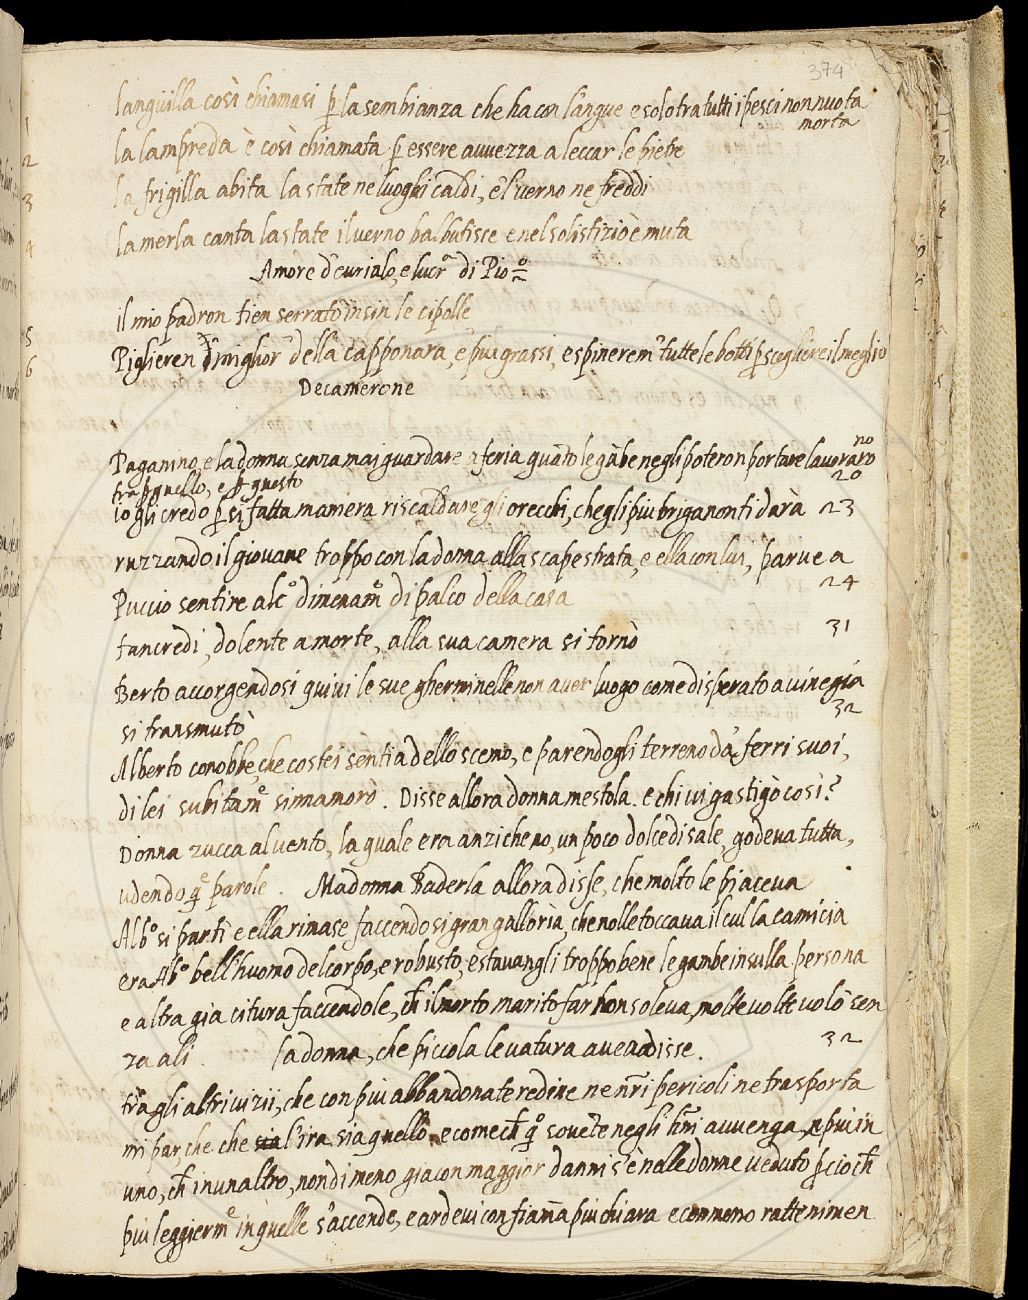 374
languilla così chiamasi p la sembianza che ha con l'angue e solo tra tutti i pesci non nuota
morta
la lampreda è così chiamata p essere avvezza a leccar le piete
la frigilla abita la state ne luoghi caldi, e'l verno ne freddi
la merla canta la state il verno balbutisce e nel solistizio è muta
Amore d'eurialo, e lucra di Pio
il mio padron tien serrato insin le cipolle
Piglieren miglior della capponara, e' piu grassi, e spinerem tutte le botti p scegliere il meglio
Decamerone
Paganino, e la donna senza mai guardare a feria quāto le gābe ne gli poteron portare lavoraro
no
20
tra p quello, e p questo
io gli credo p sì fatta maniera riscaldare gli orecchi, che gli piu briga non ti darà 23
ruzzando il giovane troppo con la donna alla scapestrata, e ella con lui, parve a
24
Puccio sentire alco dimenamo di palco della casa
tancredi, dolente a morte, alla sua camera si tornò
31
Berto accorgendosi quivi le sue gherminelle non aver luogo come disperato a vinegia
32
si transmutò
Alberto conobbe, che costei sentia dello scemo, e parendogli terreno da' ferri suoi,
di lei subitame sinnamorò. Disse allora donna mestola. e chi vi gastigò così?
Donna zucca al vento, la quale era anzi che no, un poco dolce di sale, godeva tutta,
udendo qe parole. Madonna Baderla allora disse, che molto le piaceva
Albo si partì e ella rimase faccendo si gran gallòria, che nolle toccava il cul la camicia
era Abo bell'huomo del corpo, e robusto, e stavangli troppo bene le gambe in sulla persona
e altra già citura faccendole, ch il morto marito far non soleva, molte volte volò sen
za ali. la donna, che piccola levatura avea disse.
32
tra gli altri vizii, che con piu abbandonate redine ne nri pericoli ne trasporta
mi par, che che sia l'ira sia quello e comech qo sovēte negli hm avvenga, e piu in
uno, ch in un altro, nondimeno già con maggior danni s'è nelle donne veduto p cioch
piu leggierme in quelle s'accende, e ardevi con fiāma piu chiara e con meno rattenimen